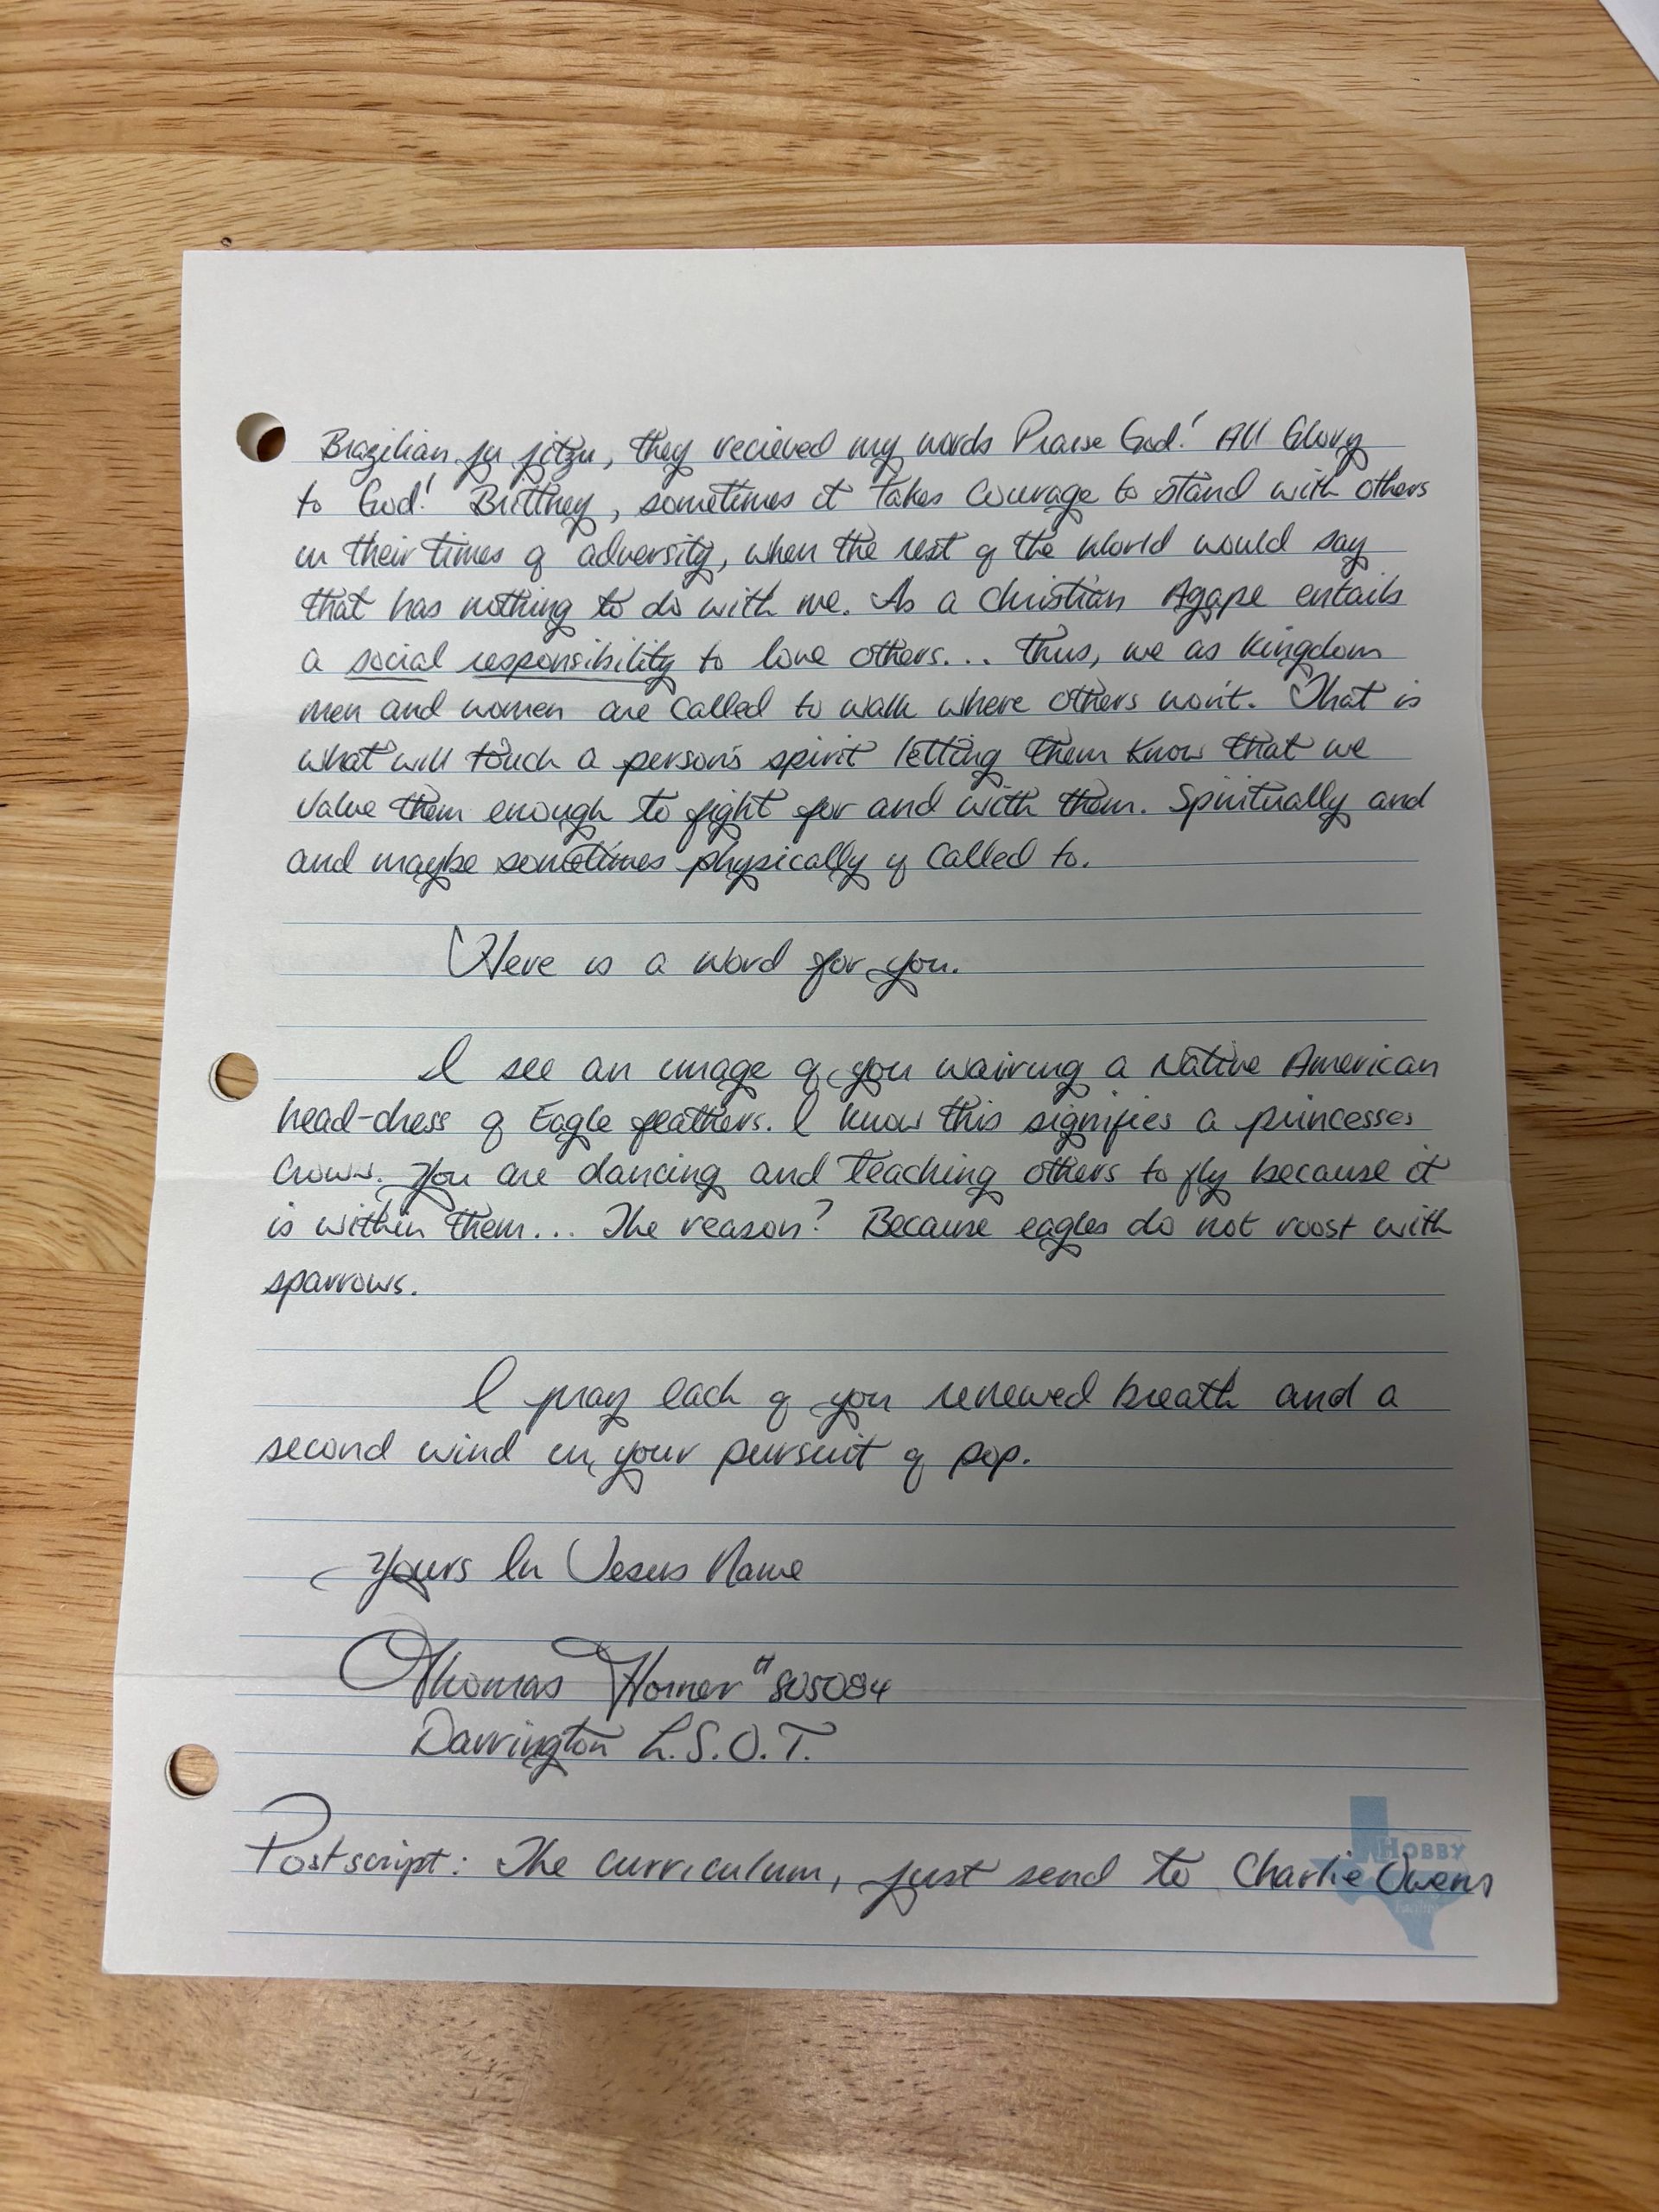 Brazilian ju jitzu, they recieved my words Praise God! All Glory
to God! Brittney, sometimes it takes courage to stand with others
in their times of adversity, when the rest of the world would say
that has nothing to do with me. As a Christian Agape entails
a social responsibility to love others... Thus, we as kingdom
men and women are called to walk where others won't. That is
what will touch a person's spirit letting them know that we
value them enough to fight for and with them. Spiritually and
and maybe sometimes physically if called to.
Here is a word for you.
I see an image of you wairing a Native American
head-dress of Eagle feathers. I know this signifies a princesses
crown. You are dancing and teaching others to fly because it
is within them... The reason? Because eagles do not roost with
sparrows.
I pray each of you renewed breath and a
second wind in your pursuit of pop.
Yours In Jesus Name
Thomas Horner #805084
Darrington L.S.O.T.
Postscript: The curriculum, just send to Charlie Owens
HOBBY